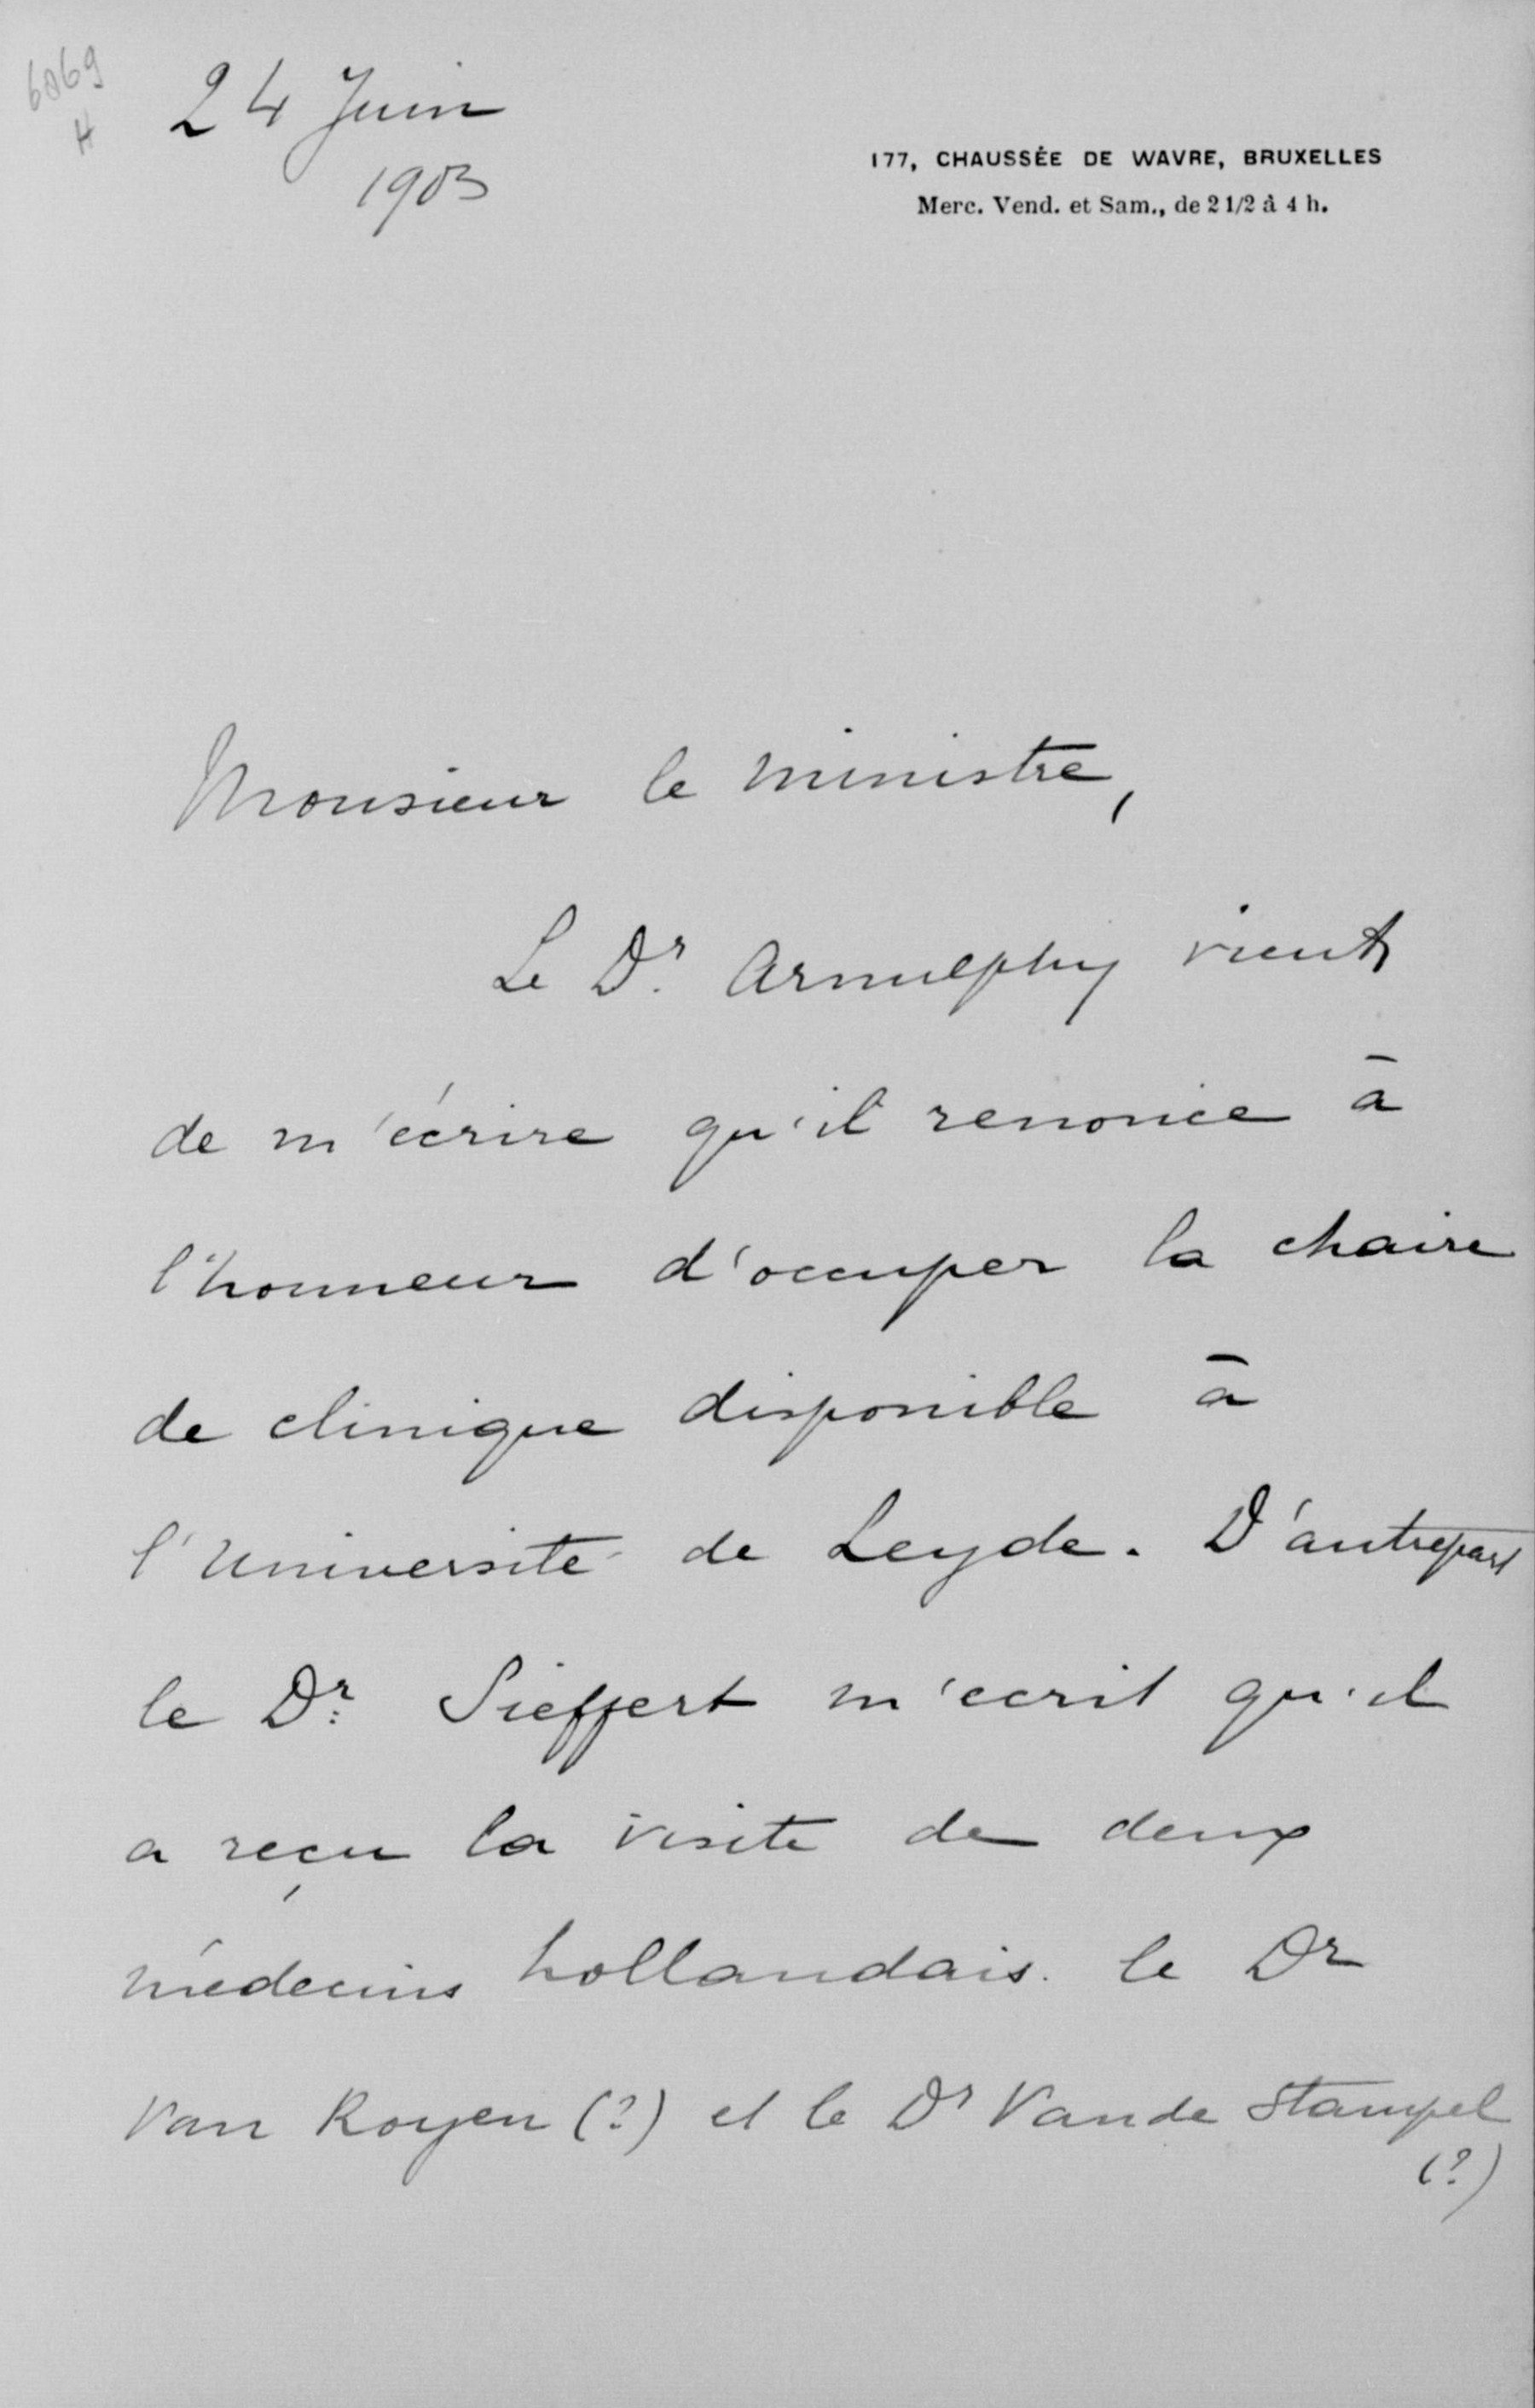 6069
H
24 Juin
1903
177, CHAUSSÉE DE WAVRE, BRUXELLES
Merc. Vend. et Sam., de 2 1/2 à 4 h.
Monsieur le ministre,
Le Dr. Arnulphy vient
de m'écrire qu'il renonce à
l'honneur d'occuper la chaire
de clinique disponible à
l'Université de Leyde. D'autre part
le Dr. Sieffert m'écrit qu'il
a reçu la visite de deux
médecins hollandais. le Dr
Van Royen (?) et le Dr Vande Stampel
(?)